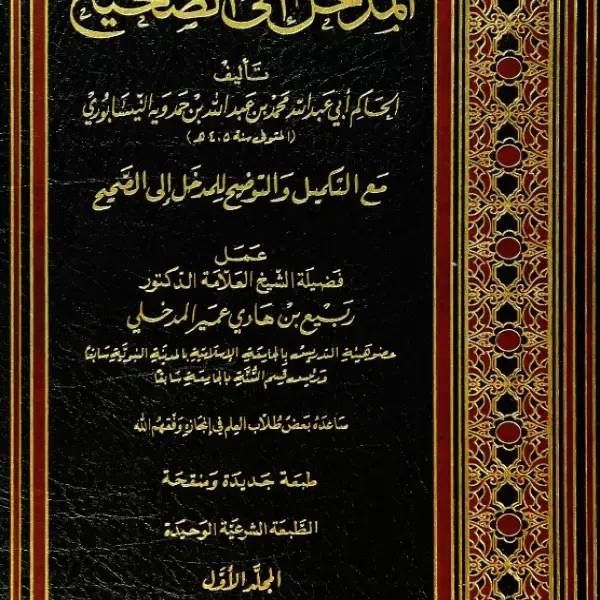 المدخل إلى الصحيح
تأليف
الحاكم أبي عبد الله محمد بن عبد الله بن حمدويه النيسابوري
(المتوفى سنة ٤٠٥ هـ)
مع التكميل والتوضيح للمدخل إلى الصحيح
عمل
فضيلة الشيخ العلامة الدكتور
ربيع بن هادي عمير المدخلي
عضو هيئة التدريس بالجامعة الإسلامية بالمدينة النبوية سابقا
ورئيس قسم السنة بالجامعة سابقا
ساعده بعض طلاب العلم في إنجازه وفقهم الله
طبعة جديدة ومنقحة
الطبعة الشرعية الوحيدة
المجلد الأول